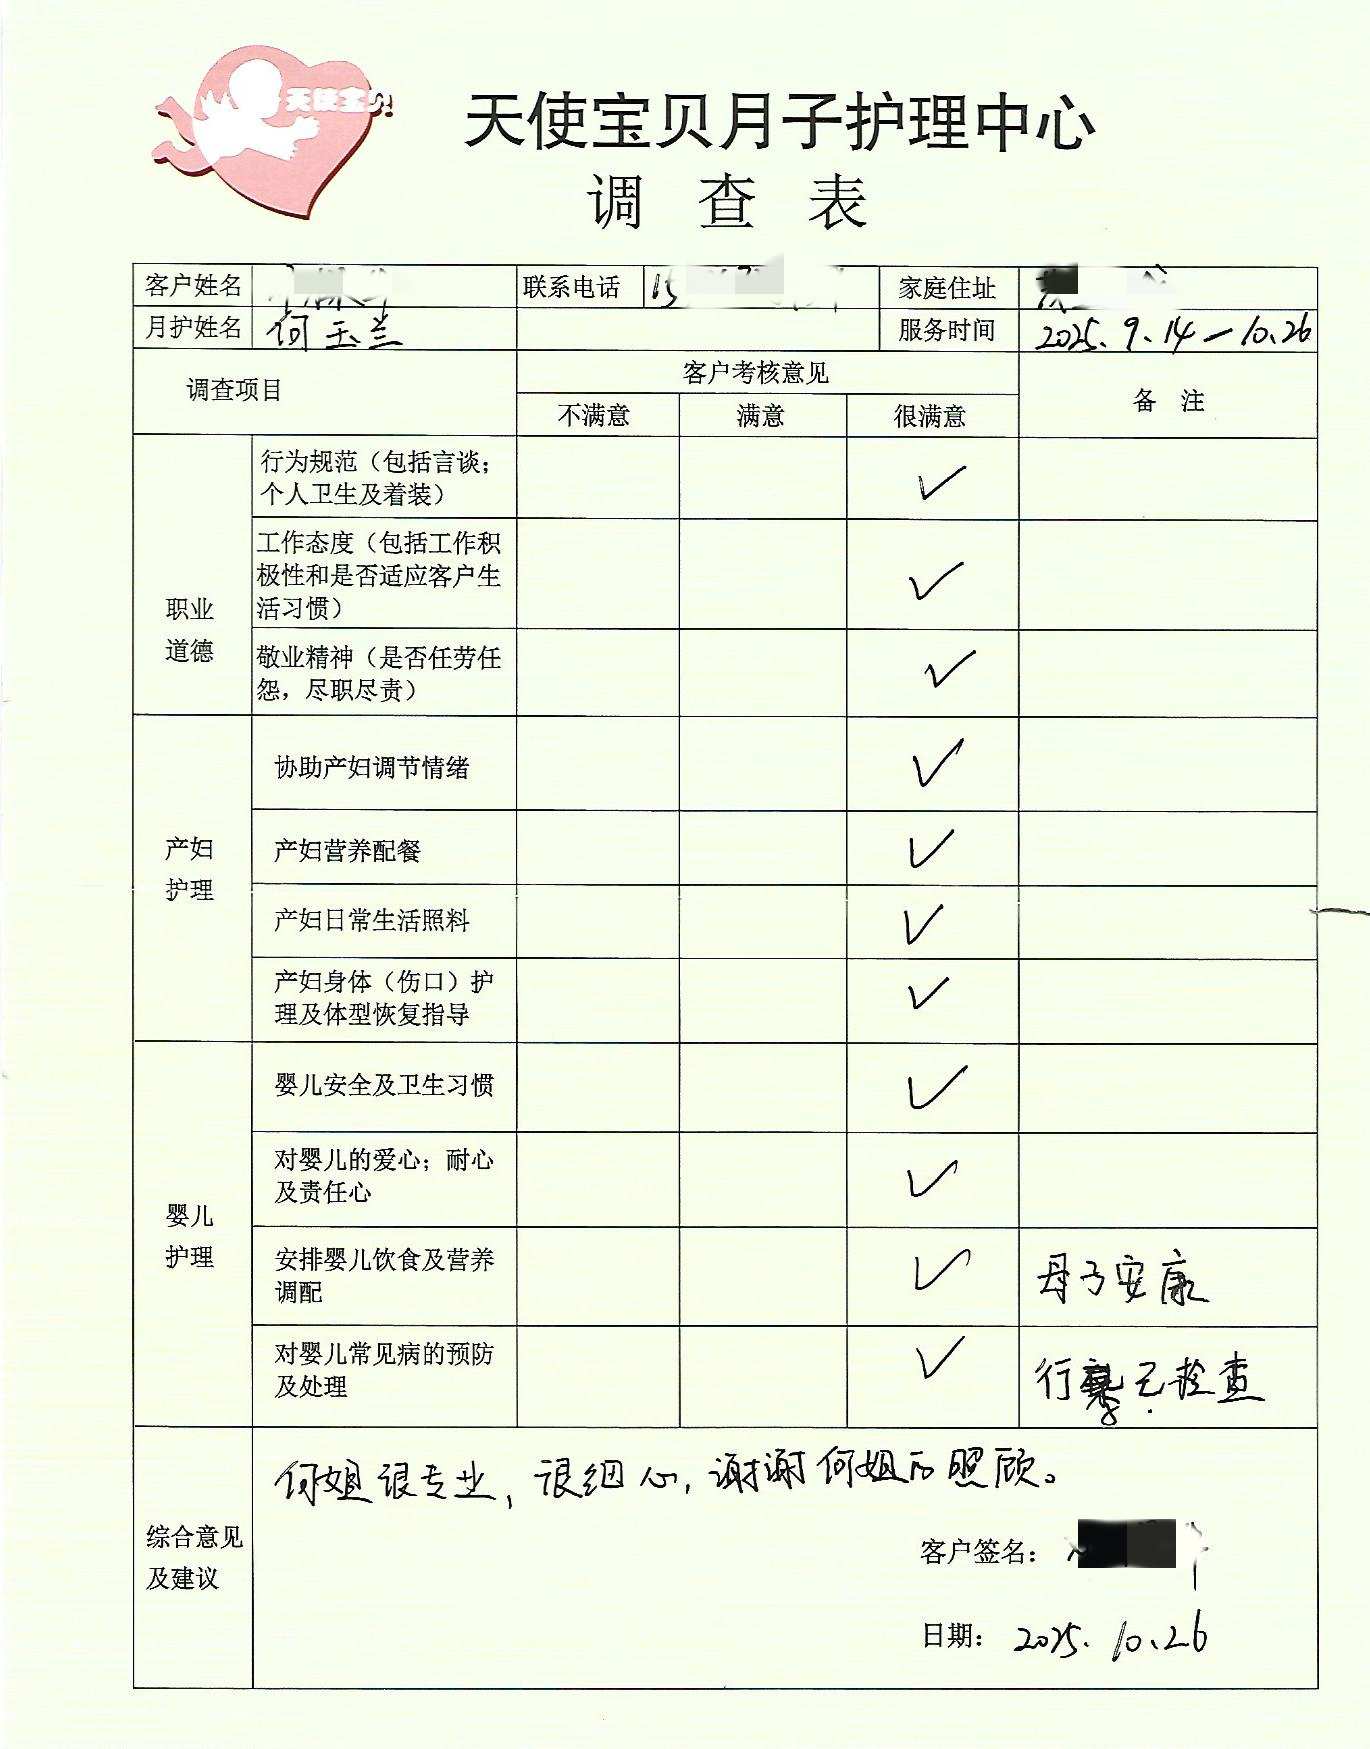 天使宝贝
天使宝贝月子护理中心
调 查 表
客户姓名 联系电话 15 家庭住址
月护姓名 何玉兰 服务时间 2025.9.14-10.26
调查项目 客户考核意见 备 注
不满意 满意 很满意
职业
道德
行为规范（包括言谈；
个人卫生及着装） ✓
工作态度（包括工作积
极性和是否适应客户生
活习惯） ✓
敬业精神（是否任劳任
怨，尽职尽责） ✓
产妇
护理
协助产妇调节情绪 ✓
产妇营养配餐 ✓
产妇日常生活照料 ✓
产妇身体（伤口）护
理及体型恢复指导 ✓
婴儿
护理
婴儿安全及卫生习惯 ✓
对婴儿的爱心；耐心
及责任心 ✓
安排婴儿饮食及营养
调配 ✓ 母子安康
对婴儿常见病的预防
及处理 ✓ 行李已检查
综合意见
及建议
何姐很专业，很细心，谢谢何姐的照顾。
客户签名：
日期： 2025.10.26